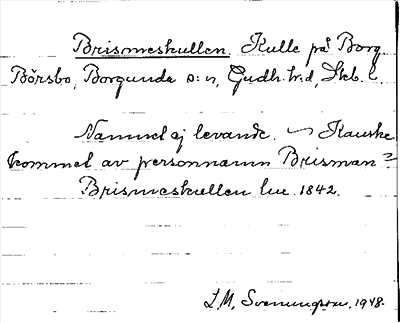 Brismeskullen. Kulle på Borg.
Börsbo, Borgunda s:n, Gudh. h:d, Skb. l.
Namnet ej levande. ~ Kanske
kommet av personnamn Brisman?
Brismeskullen lm. 1842.
L. M. Svenungsson. 1948.